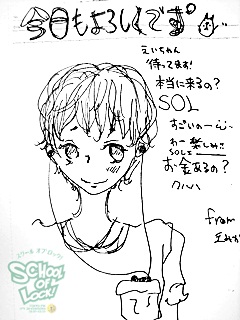 今日もよろしくです
えいちゃん
待ってます!
本当に来るの?
SOL
すごいのーん
わー楽しみ!!
SOLに
お金あるの?
クハハ
from
スクール オブ ロック!
SCHOOL
OF
LOCK!